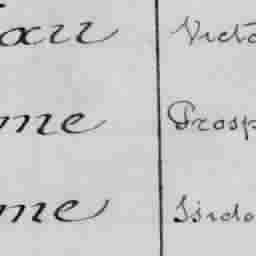 au Victo
me Prosp
me Isido